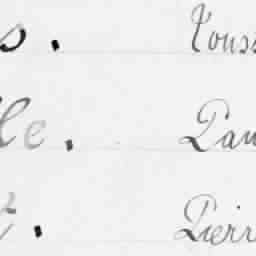 s. Touss
lle. Pau
t. Pierr